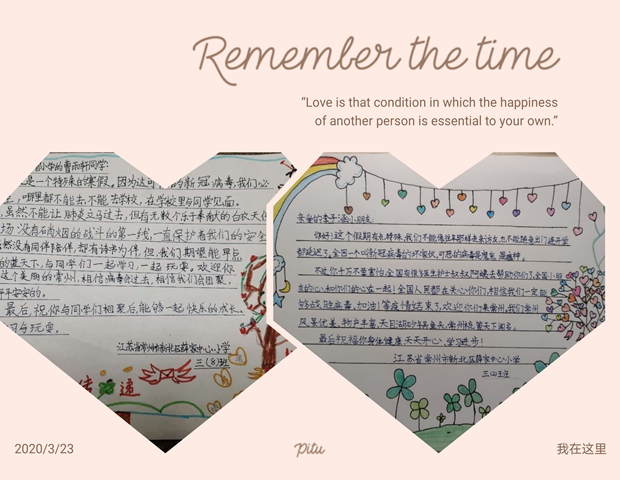 Remember the time
“Love is that condition in which the happiness
of another person is essential to your own.”
小学的曹雨轩同学
是一个特殊的寒假，因为这可 的新冠病毒，我们必
，哪里都不能去，不能去学校，在学校里与同学见面。
虽然不能让肺炎立马过去，但有无数个乐于奉献的白衣天使
场没有硝烟的战斗的第一线，一直保护着我们的安全
然没有同伴陪伴，都有诗书为伴，但，我们期望能早点
的蓝天下，与同学们一起学习，一起玩耍。欢迎你
这个美丽的常州，相信病毒过去，相信我们会团聚，
平平安安的。
最后，祝你与同学们相聚后，能够一起快乐的成长，
习与玩耍。
江苏省常州市新北区薛家中心小学
三(8)班
传递
安全的李子涵小朋友：
你好！这个假期有点特殊，我们不能像往年那样走亲访友，也不能随意出门，连开学
都延迟了，全因一个叫新冠病毒的坏家伙，可恶的病毒是鬼鬼
不过你千万不要害怕，全国有很多医生护士叔叔阿姨去帮助你们，全国小朋
的心和你们的心在一起！全国人民都在关心你们，相信我们一定能
够战胜病毒，加油！等疫情结束了，欢迎你们来常州，我们常州
风景优美，物产丰富，天目湖砂锅鱼头，常州恐龙园天下闻名。
最后祝福你身体健康，天天开心，学习进步！
江苏省常州市新北区薛家中心小学
2020/3/23
Pitu
我在这里